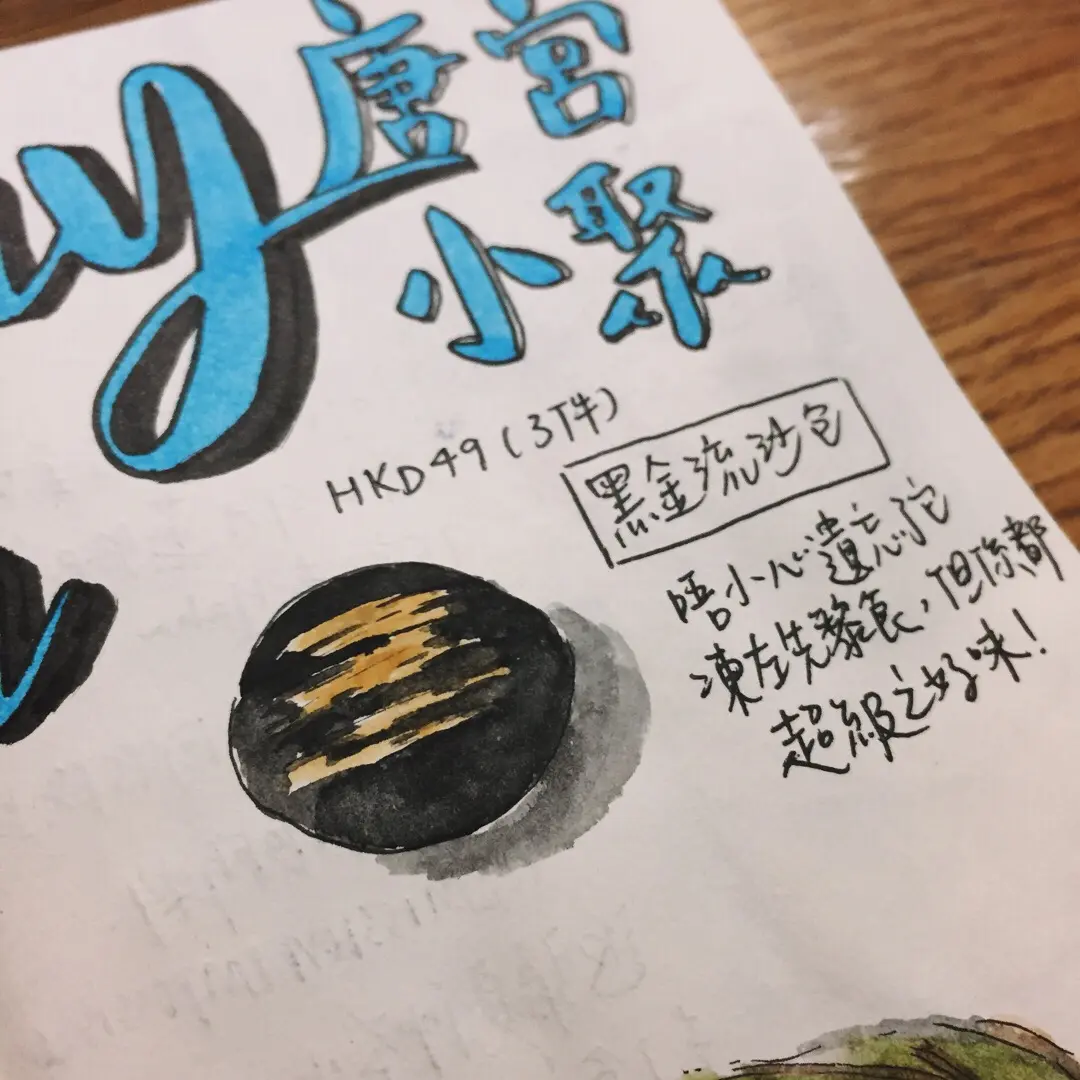 唐宮
小聚
HKD49(3件)
黑金流沙包
唔小心遺忘佢
凍左先黎食,但係都
超級之好味!